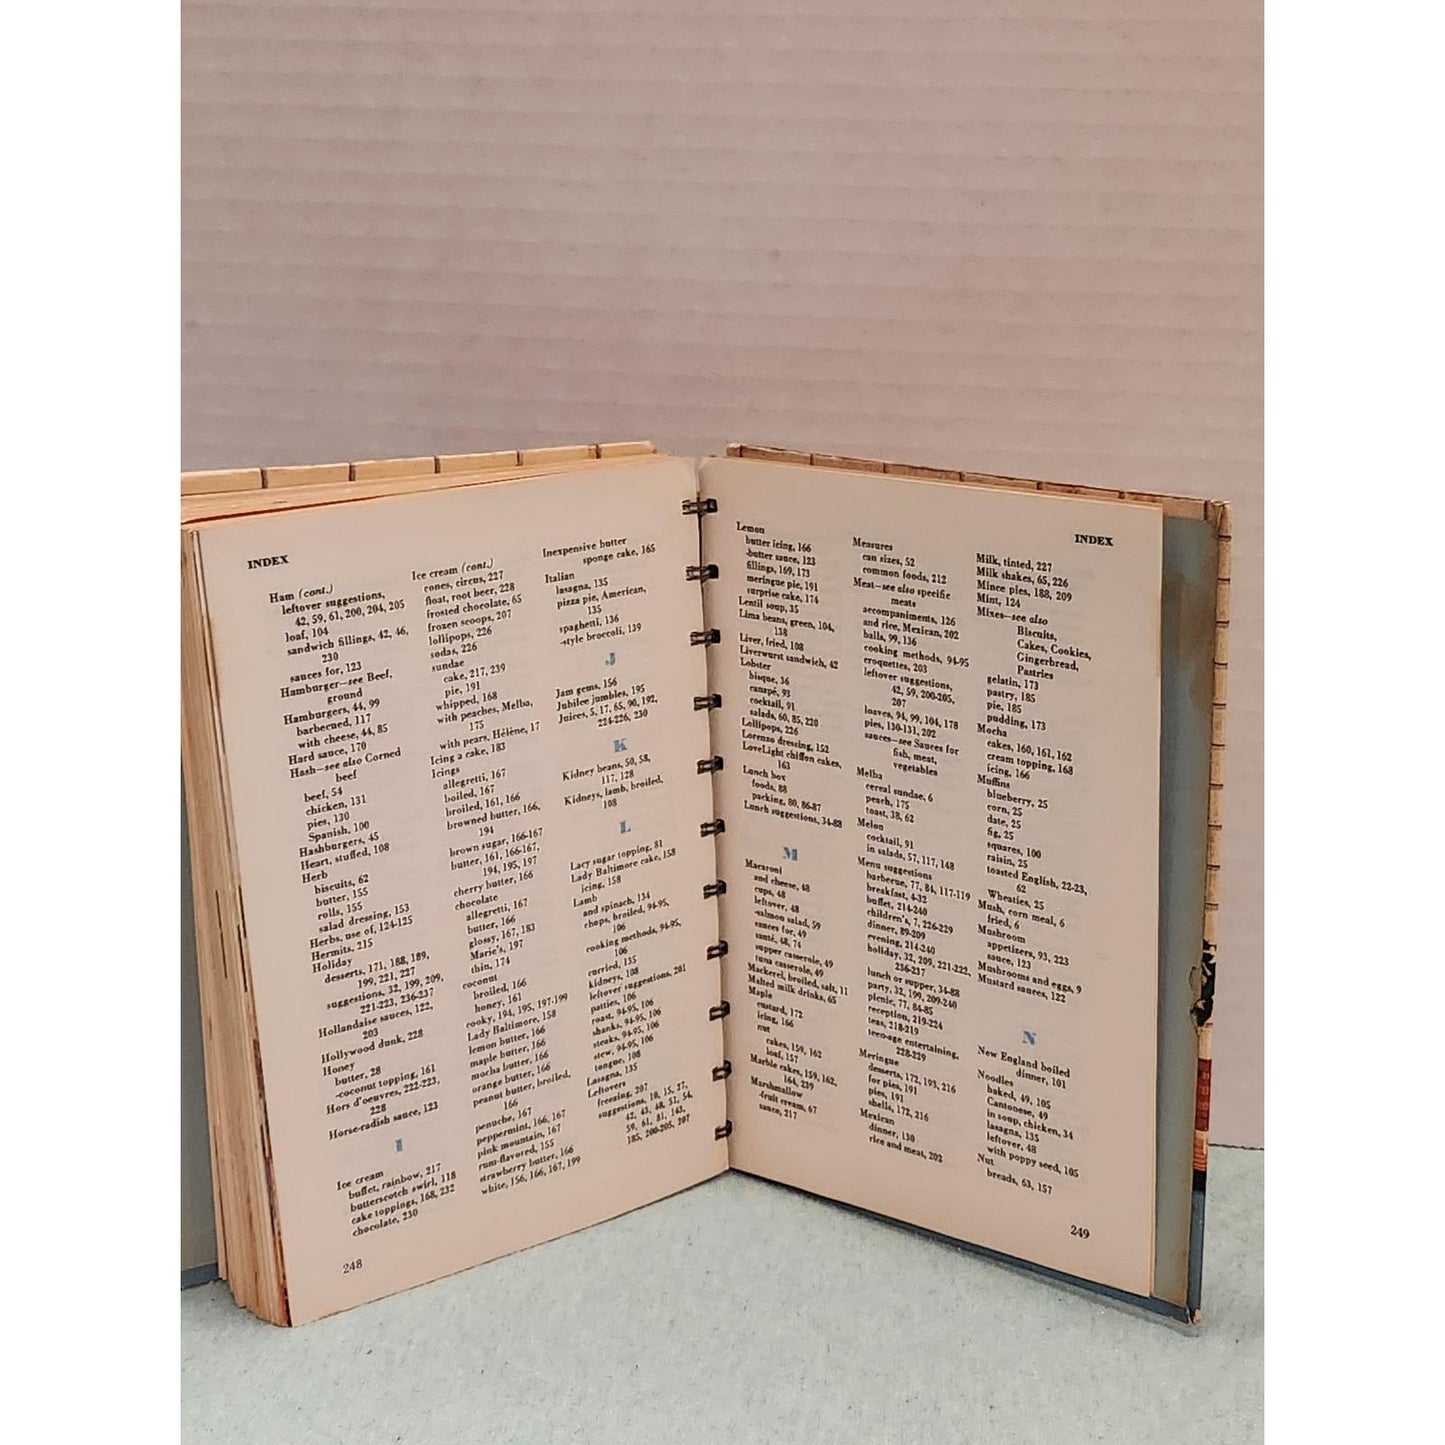 INDEX
Ham (cont.)
leftover suggestions,
42, 59, 61, 200, 204, 205
loaf, 104
sandwich fillings, 42, 46,
230
sauces for, 123
Hamburger—see Beef,
ground
Hamburgers, 44, 99
barbecued, 117
with cheese, 44, 85
Hard sauce, 170
Hash—see also Corned
beef
beef, 54
chicken, 131
pies, 130
Spanish, 100
Hashburgers, 45
Heart, stuffed, 108
Herb
biscuits, 62
butter, 155
rolls, 155
salad dressing, 153
Herbs, use of, 124-125
Hermits, 215
Holiday
desserts, 171, 188, 189,
199, 221, 227
suggestions, 32, 199, 209,
221-223, 236-237
Hollandaise sauces, 122,
203
Hollywood dunk, 228
Honey
butter, 28
-coconut topping, 161
Hors d'oeuvres, 222-223,
228
Horse-radish sauce, 123
I
Ice cream
buffet, rainbow, 217
butterscotch swirl, 118
cake toppings, 168, 232
chocolate, 230
Ice cream (cont.)
cones, circus, 227
float, root beer, 228
frosted chocolate, 65
frozen scoops, 207
lollipops, 226
sodas, 226
sundae
cake, 217, 239
pie, 191
whipped, 168
with peaches, Melba,
175
with pears, Hélène, 17
Icing a cake, 183
Icings
allegretti, 167
boiled, 167
broiled, 161, 166
browned butter, 166,
194
brown sugar, 166-167
butter, 161, 166-167,
194, 195, 197
cherry butter, 166
chocolate
allegretti, 167
butter, 166
glossy, 167, 183
Marie's, 197
thin, 174
coconut
broiled, 166
honey, 161
cooky, 194, 195, 197-199
Lady Baltimore, 158
lemon butter, 166
maple butter, 166
mocha butter, 166
orange butter, 166
peanut butter, broiled,
166
penuche, 167
peppermint, 166, 167
pink mountain, 167
rum-flavored, 155
strawberry butter, 166
white, 156, 166, 167, 199
Inexpensive butter
sponge cake, 165
Italian
lasagna, 135
pizza pie, American,
135
spaghetti, 136
-style broccoli, 139
J
Jam gems, 156
Jubilee jumbles, 195
Juices, 5, 17, 65, 90, 192,
224-226, 230
K
Kidney beans, 50, 58,
117, 128
Kidneys, lamb, broiled,
108
L
Lacy sugar topping, 81
Lady Baltimore cake, 158
icing, 158
Lamb
and spinach, 134
chops, broiled, 94-95,
106
cooking methods, 94-95,
106
curried, 135
kidneys, 108
leftover suggestions, 201
patties, 106
roast, 94-95, 106
shanks, 94-95, 106
steaks, 94-95, 106
stew, 94-95, 106
tongue, 108
Lasagna, 135
Leftovers
freezing, 207
suggestions, 10, 15, 37,
42, 43, 48, 51, 54,
59, 61, 81, 143,
185, 200-205, 207
248
INDEX
Lemon
butter icing, 166
-butter sauce, 123
fillings, 169, 173
meringue pie, 191
surprise cake, 174
Lentil soup, 35
Lima beans, green, 104,
138
Liver, fried, 108
Liverwurst sandwich, 42
Lobster
bisque, 36
canapé, 93
cocktail, 91
salads, 60, 85, 220
Lollipops, 226
Lorenzo dressing, 152
LoveLight chiffon cakes,
163
Lunch box
foods, 88
packing, 80, 86-87
Lunch suggestions, 34-88
M
Macaroni
and cheese, 48
cups, 48
leftover, 48
-salmon salad, 59
sauces for, 49
santé, 48, 74
supper casserole, 49
tuna casserole, 49
Mackerel, broiled, salt, 11
Malted milk drinks, 65
Maple
custard, 172
icing, 166
nut
cakes, 159, 162
loaf, 157
Marble cakes, 159, 162,
164, 239
Marshmallow
-fruit cream, 67
sauce, 217
Measures
can sizes, 52
common foods, 212
Meat—see also specific
meats
accompaniments, 126
and rice, Mexican, 202
balls, 99, 136
cooking methods, 94-95
croquettes, 203
leftover suggestions,
42, 59, 200-205,
207
loaves, 94, 99, 104, 178
pies, 130-131, 202
sauces—see Sauces for
fish, meat,
vegetables
Melba
cereal sundae, 6
peach, 175
toast, 38, 62
Melon
cocktail, 91
in salads, 57, 117, 148
Menu suggestions
barbecue, 77, 84, 117-119
breakfast, 4-32
buffet, 214-240
children's, 7, 226-229
dinner, 89-209
evening, 214-240
holiday, 32, 209, 221-222,
236-237
lunch or supper, 34-88
party, 32, 199, 209-240
picnic, 77, 84-85
reception, 219-224
teas, 218-219
teen-age entertaining,
228-229
Meringue
desserts, 172, 193, 216
for pies, 191
pies, 191
shells, 172, 216
Mexican
dinner, 130
rice and meat, 202
Milk, tinted, 227
Milk shakes, 65, 226
Mince pies, 188, 209
Mint, 124
Mixes—see also
Biscuits,
Cakes, Cookies,
Gingerbread,
Pastries
gelatin, 173
pastry, 185
pie, 185
pudding, 173
Mocha
cakes, 160, 161, 162
cream topping, 168
icing, 166
Muffins
blueberry, 25
corn, 25
date, 25
fig, 25
squares, 100
raisin, 25
toasted English, 22-23,
62
Wheaties, 25
Mush, corn meal, 6
fried, 6
Mushroom
appetizers, 93, 223
sauce, 123
Mushrooms and eggs, 9
Mustard sauces, 122
N
New England boiled
dinner, 101
Noodles
baked, 49, 105
Cantonese, 49
in soup, chicken, 34
lasagna, 135
leftover, 48
with poppy seed, 105
Nut
breads, 63, 157
249